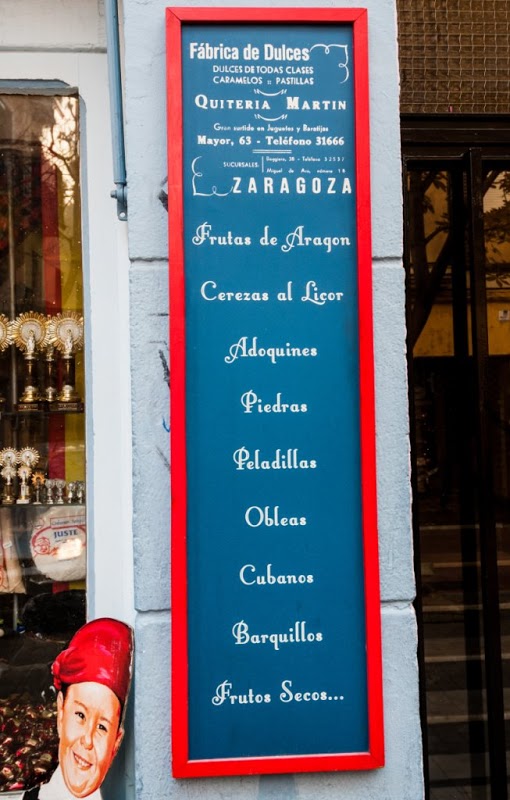 Fábrica de Dulces
DULCES DE TODAS CLASES
CARAMELOS :: PASTILLAS
QUITERIA MARTIN
Gran surtido en Juguetes y Baratijas
Mayor, 63 - Teléfono 31666
SUCURSALES:
Miguel de Ara, número 18
ZARAGOZA
Frutas de Aragon
Cerezas al Licor
Adoquines
Piedras
Peladillas
Obleas
Cubanos
Barquillos
Frutos Secos...
JUSTE